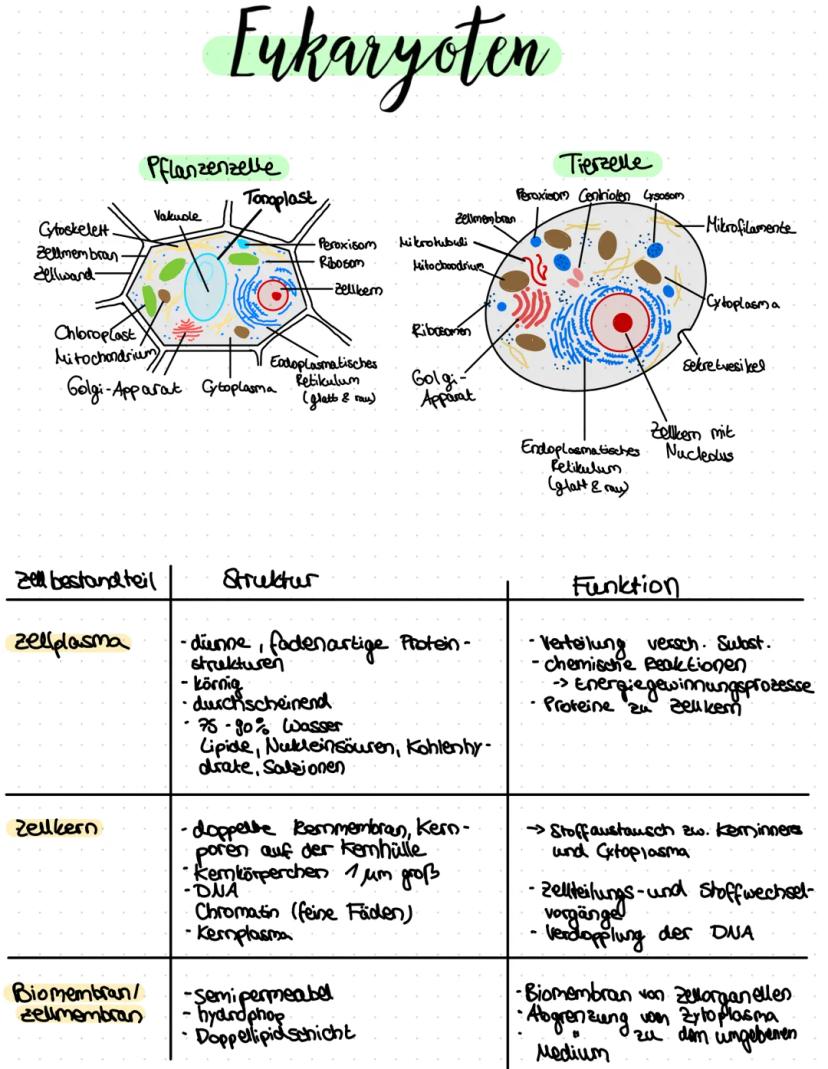 Eukaryoten
Pflanzenzelle
Tonoplast
Vakuole
Cytoskelett
Zellmembran
Zellwand
Peroxisom
Ribosom
Zellkern
Chloroplast
Mitochondrium
Golgi-Apparat
Cytoplasma
Endoplasmatisches
Retikulum
(glatt & rau)
Tierzelle
Peroxisom
Centriolen
Lysosom
Zellmembran
Mikrofilamente
Mikrotubuli
Mitochondrium
Cytoplasma
Ribosomen
Sekretvesikel
Golgi-
Apparat
Zellkern mit
Nucleolus
Endoplasmatisches
Retikulum
(glatt & rau)
Zellbestandteil
Struktur
Funktion
Zellplasma
- dünne, fadenartige Protein-
strukturen
- körnig
- durchscheinend
- 75-90% Wasser
Lipide, Nukleinsäuren, Kohlenhy-
drate, Salzionen
- Verteilung versch. Subst.
- chemische Reaktionen
-> Energiegewinnungsprozesse
- Proteine zu Zellkern
Zellkern
- doppelte Kernmembran, Kern-
poren auf der Kernhülle
- Kernkörperchen 1 µm groß
- DNA
Chromatin (feine Fäden)
- Kernplasma
-> Stoffaustausch zw. Kerninneres
und Cytoplasma
- Zellteilungs- und Stoffwechsel-
vorgänge
- Verdopplung der DNA
Biomembran/
Zellmembran
- semipermeabel
- hydrophop
- Doppellipidschicht
- Biomembran von Zellorganellen
- Abgrenzung vom Zytoplasma
- " zu dem umgebenen
Medium